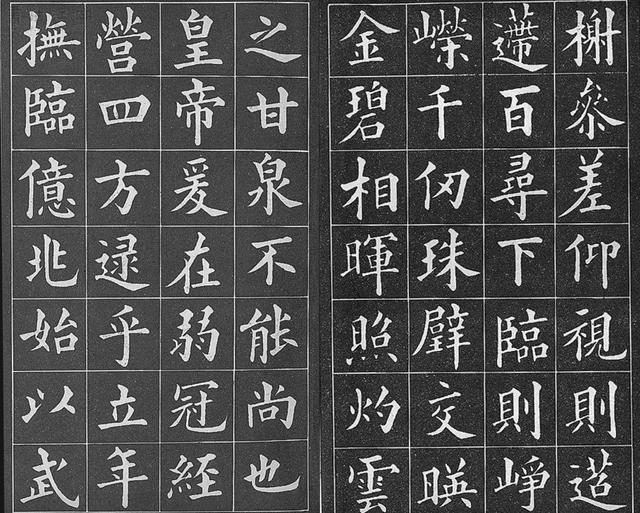 榭叅差仰視則迢
遰百尋下臨則崢
嶸千仞珠璧交暎
金碧相暉照灼雲
之甘泉不能尚也
皇帝爰在弱冠經
營四方逮乎立年
撫臨億兆始以武